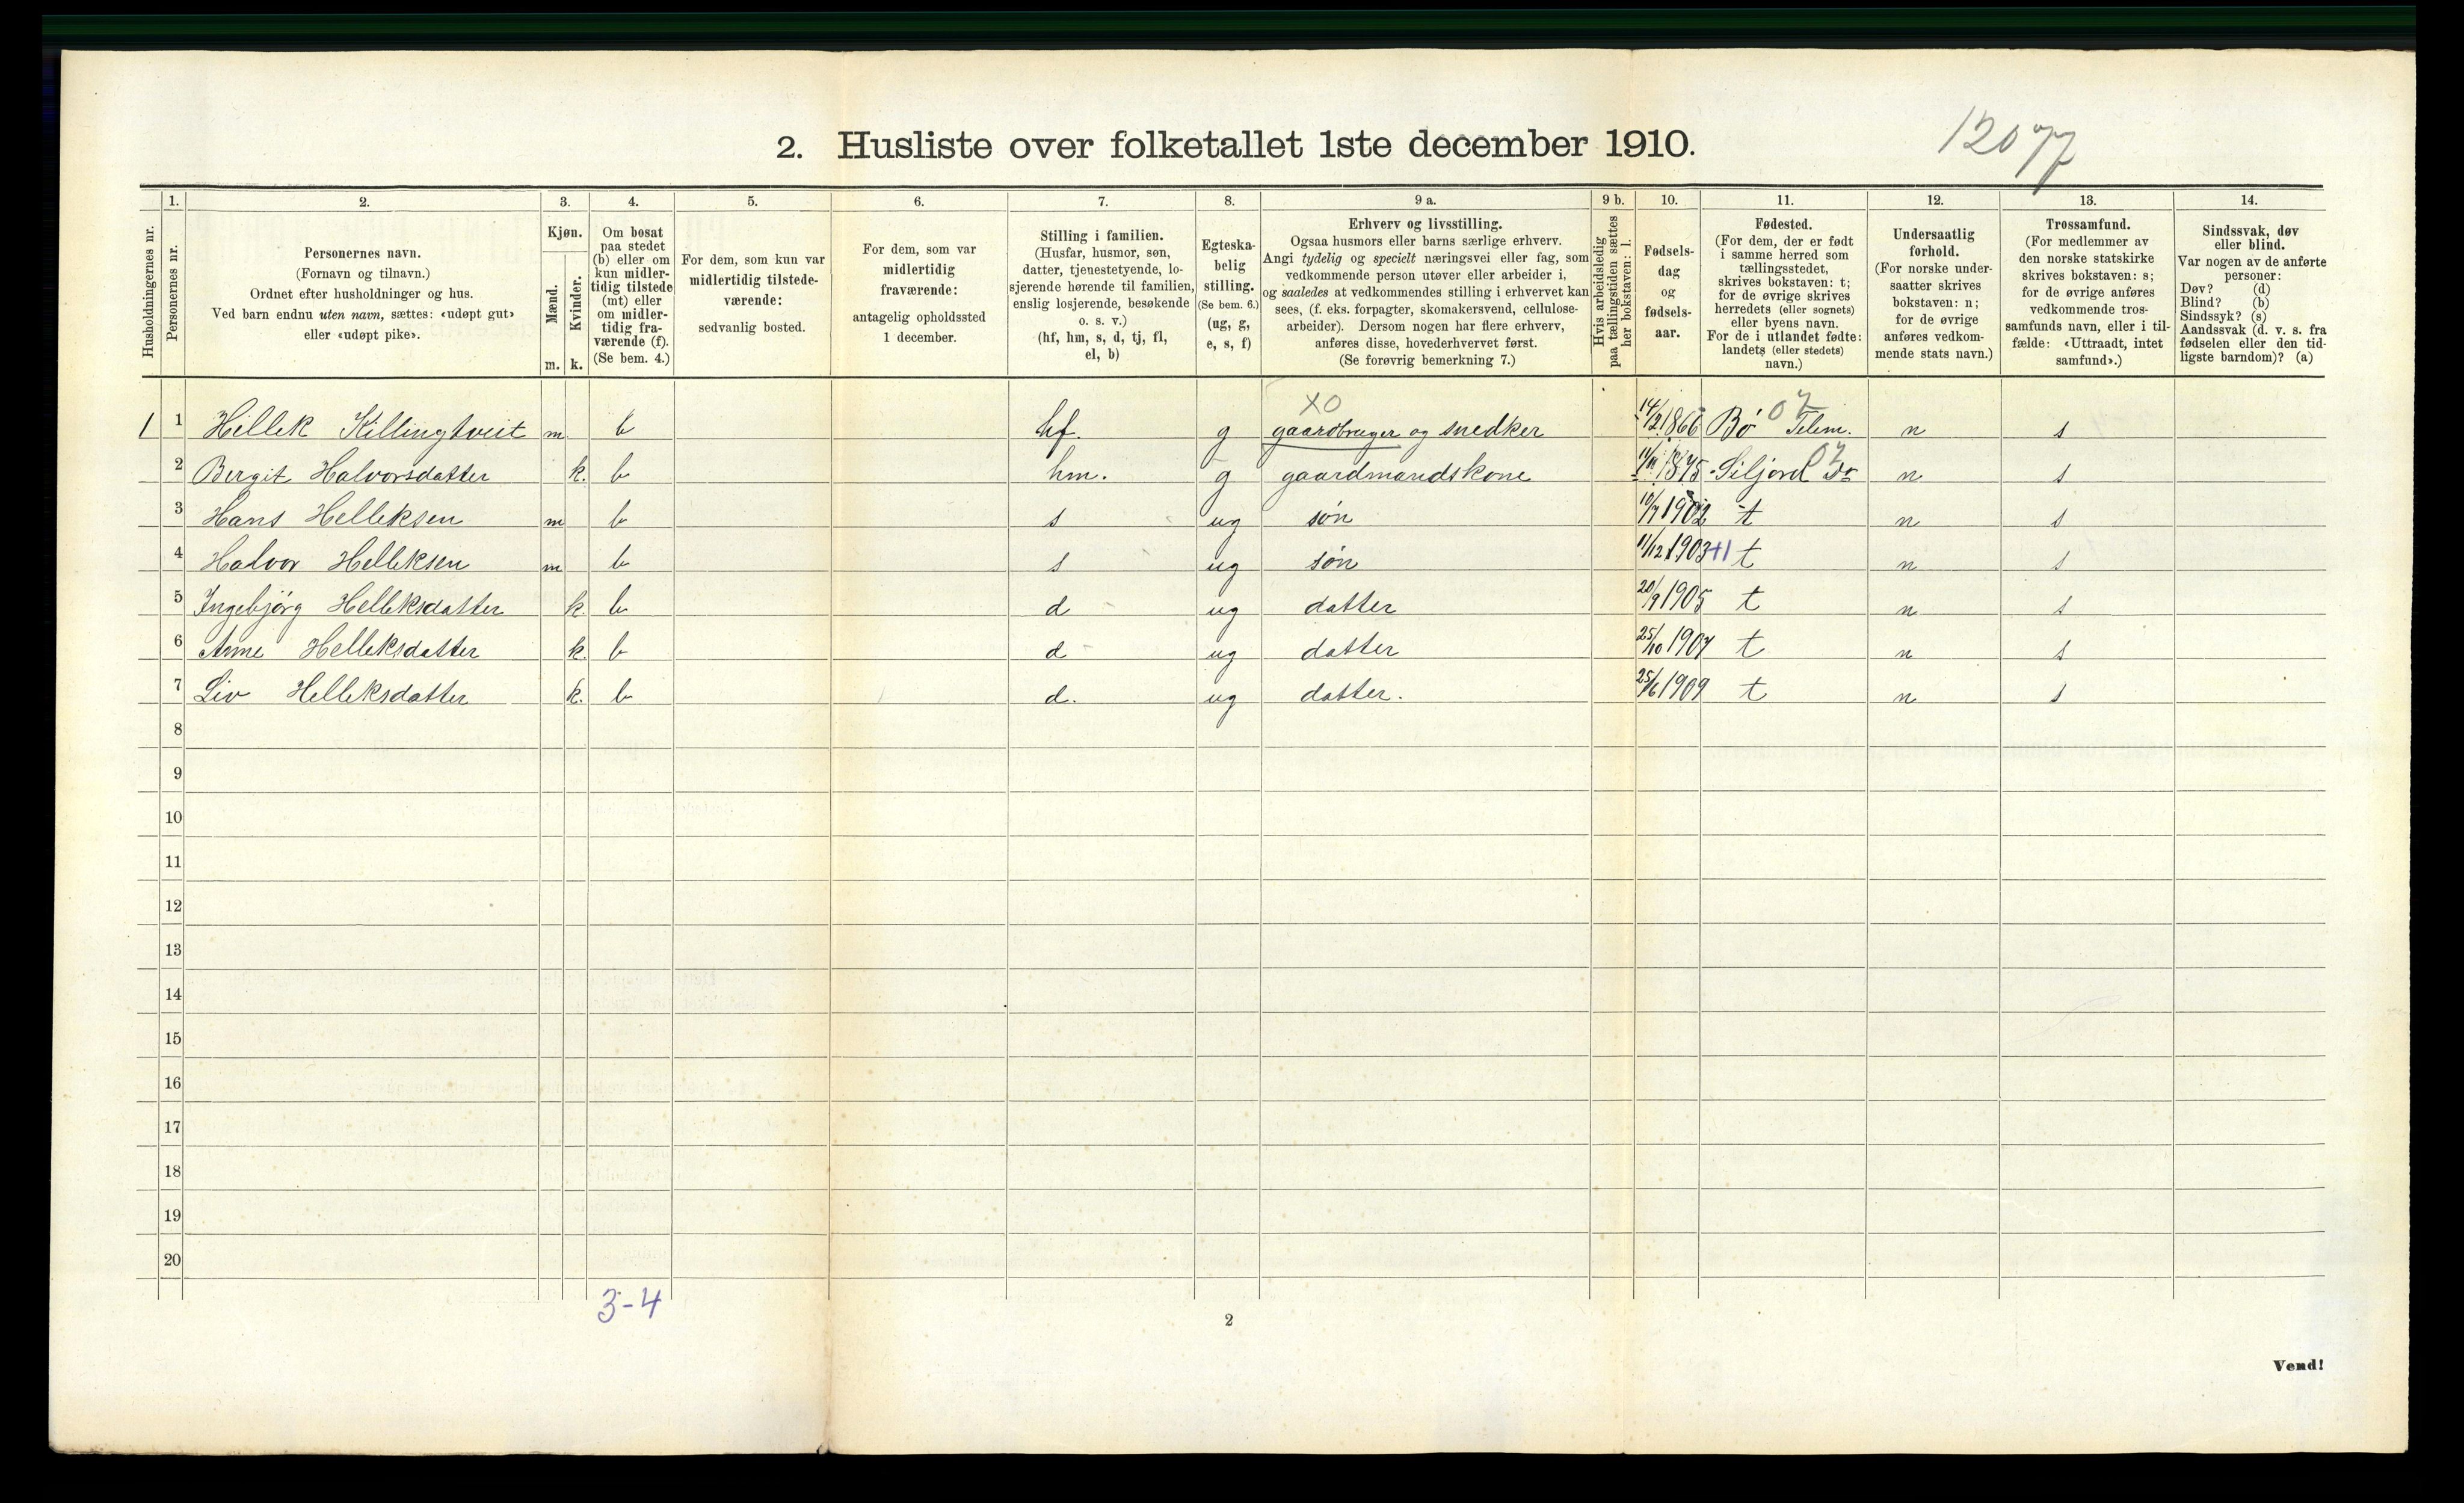 12077
2. Husliste over folketallet 1ste december 1910.
1. 2. 3. 4. 5. 6. 7. 8. 9 a. 9 b. 10. 11. 12. 13. 14.
Husholdningernes nr.
Personernes nr.
Personernes navn.
(Fornavn og tilnavn.)
Ordnet efter husholdninger og hus.
Ved barn endnu uten navn, sættes: «udøpt gut»
eller «udøpt pike».
Kjøn.
Mænd.
Kvinder.
m. k.
Om bosat
paa stedet
(b) eller om
kun midler-
tidig tilstede
(mt) eller
om midler-
tidig fra-
værende (f).
(Se bem. 4.)
For dem, som kun var
midlertidig tilstede-
værende:
sedvanlig bosted.
For dem, som var
midlertidig
fraværende:
antagelig opholdssted
1 december.
Stilling i familien.
(Husfar, husmor, søn,
datter, tjenestetyende, lo-
sjerende hørende til familien,
enslig losjerende, besøkende
o. s. v.)
(hf, hm, s, d, tj, fl,
el, b)
Egteska-
belig
stilling.
(Se bem. 6.)
(ug, g,
e, s, f)
Erhverv og livsstilling.
Ogsaa husmors eller barns særlige erhverv.
Angi tydelig og specielt næringsvei eller fag, som
vedkommende person utøver eller arbeider i,
og saaledes at vedkommendes stilling i erhvervet kan
sees, (f. eks. forpagter, skomakersvend, cellulose-
arbeider). Dersom nogen har flere erhverv,
anføres disse, hovederhvervet først.
(Se forøvrig bemerkning 7.)
Hvis arbeidsledig
paa tællingstiden sættes
her bokstaven: l.
Fødsels-
dag
og
fødsels-
aar.
Fødested.
(For dem, der er født
i samme herred som
tællingsstedet,
skrives bokstaven: t;
for de øvrige skrives
herredets (eller sognets)
eller byens navn.
For de i utlandet fødte:
landets (eller stedets)
navn.)
Undersaatlig
forhold.
(For norske under-
saatter skrives
bokstaven: n;
for de øvrige
anføres vedkom-
mende stats navn.)
Trossamfund.
(For medlemmer av
den norske statskirke
skrives bokstaven: s;
for de øvrige anføres
vedkommende tros-
samfunds navn, eller i til-
fælde: «Uttraadt, intet
samfund».)
Sindssvak, døv
eller blind.
Var nogen av de anførte
personer:
Døv? (d)
Blind? (b)
Sindssyk? (s)
Aandssvak (d. v. s. fra
fødselen eller den tid-
ligste barndom)? (a)
XO 07
1 1 Hellek Killingtveit m b hf. g gaardbruger og snedker 14/2 1866 Bø Telem. n s
07
2 Bergit Halvorsdatter k. b hm. g gaardmandskone 11/11 1875 Siljord do n s
3 Hans Helleksen m b s ug søn 10/7 1902 t n s
4 Halvor Helleksen m b s ug søn 11/12 1903 +1 t n s
5 Ingebjørg Helleksdatter k. b d ug datter 20/9 1905 t n s
6 Anne Helleksdatter k. b d ug datter 25/10 1907 t n s
7 Liv Helleksdatter k. b d. ug datter. 25/6 1909 t n s
8
9
10
11
12
13
14
15
16
17
18
19
20
3-4
2
Vend!